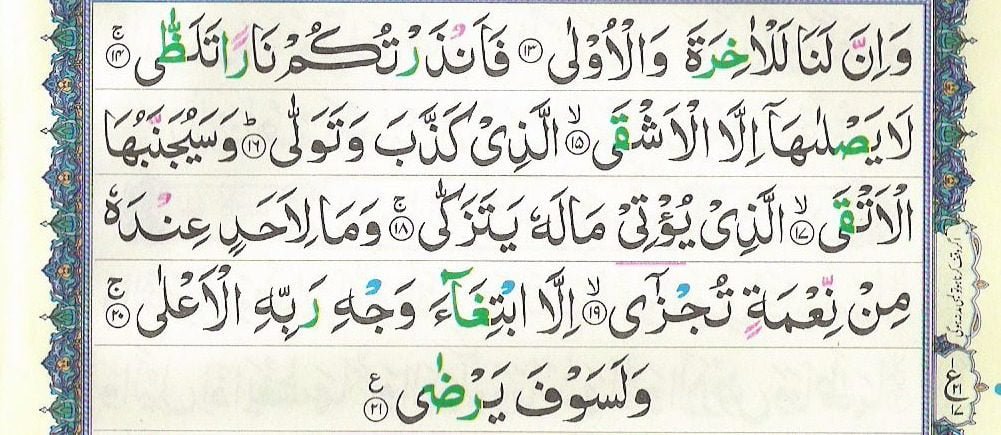 وَاِنَّ لَنَا لَلْاٰخِرَةَ وَالْاُوْلٰى ۝١٣ فَاَنْذَرْتُكُمْ نَارًا تَلَظّٰى ۝١٤ ۚ
لَا يَصْلٰىهَآ اِلَّا الْاَشْقَى ۝١٥ ۙ الَّذِىْ كَذَّبَ وَتَوَلّٰى ۝١٦ ؕ وَسَيُجَنَّبُهَا
الْاَتْقَى ۝١٧ ۙ الَّذِىْ يُؤْتِىْ مَالَهٗ يَتَزَكّٰى ۝١٨ ۚ وَمَا لِاَحَدٍ عِنْدَهٗ
مِنْ نِّعْمَةٍ تُجْزٰٓى ۝١٩ ۙ اِلَّا ابْتِغَآءَ وَجْهِ رَبِّهِ الْاَعْلٰى ۝٢٠ ۚ
وَلَسَوْفَ يَرْضٰى ۝٢١ ع
ع ٢١ ١٧